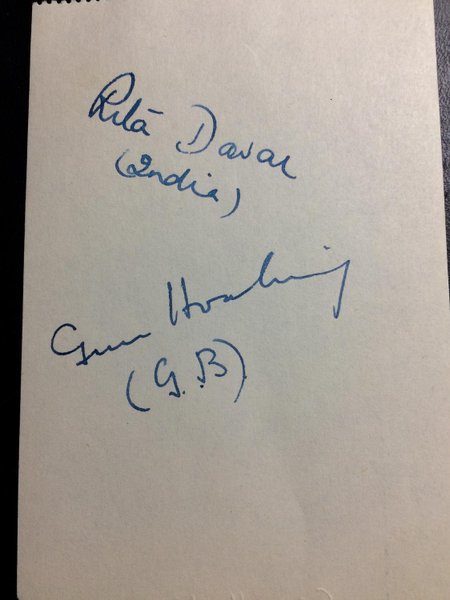 Rita Davar
(India)
Gem Hoahing
(G.B)